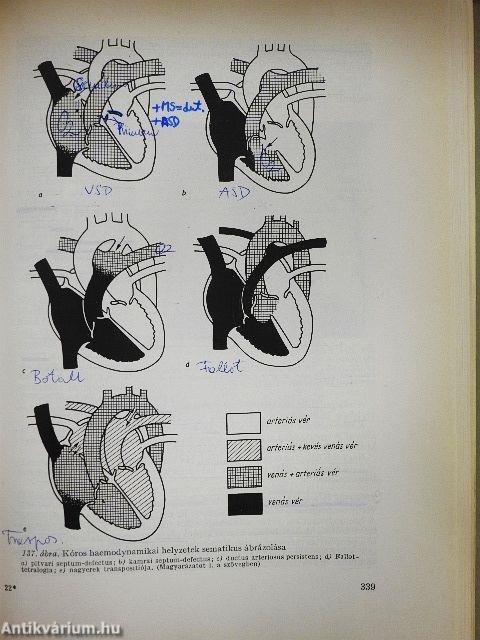 Secundum
+MS=dut.
+ASD
Primum
a
VSD
b
ASD
c
Botall
d
Fallot
arteriás vér
arteriás + kevés venás vér
venás + arteriás vér
venás vér
e
Transpos.
137. ábra. Kóros haemodynamikai helyzetek sematikus ábrázolása
a) pitvari septum-defectus; b) kamrai septum-defectus; c) ductus arteriosus persistens; d) Fallot-
tetralogia; e) nagyerek transpositiója. (Magyarázatot l. a szövegben)
22*
339
Antikvárium.hu